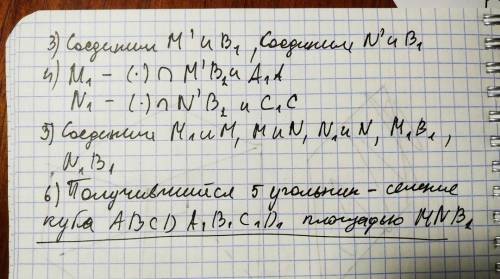 3) Соединим M' и B₁, Соединим N' и B₁
4) M₁ – (·) ∩ M'B₂ и A₁A
N₁ – (·) ∩ N'B₂ и C₁C
5) Соединим M₁ и M, M и N, N₁ и N, M₁B₁,
N₁B₁
6) Получившийся 5 угольник – сечение
куба ABCD A₁B₁C₁D₁ площадью MNB₁